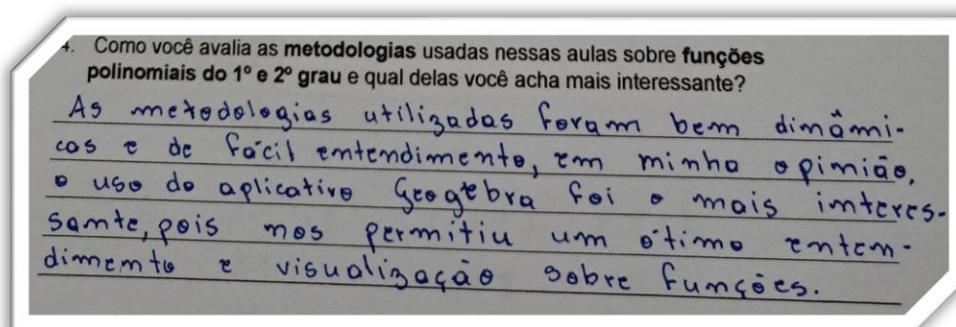 4. Como você avalia as metodologias usadas nessas aulas sobre funções
polinomiais do 1º e 2º grau e qual delas você acha mais interessante?
As metodologias utilizadas foram bem dinâmi-
cas e de fácil entendimento, em minha opinião,
o uso do aplicativo Geogebra foi o mais interes-
sante, pois nos permitiu um ótimo enten-
dimento e visualização sobre funções.